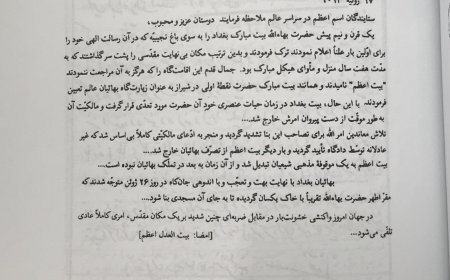 ۱۷ ژوئیه ۲۰۱۳
ستایندگان اسم اعظم در سراسر عالم ملاحظه فرمایند دوستان عزیز و محبوب،
یک قرن و نیم پیش حضرت بهاءالله بیت مبارک بغداد را به سوی باغ نجیبیّه که در آن رسالت الهی خود را
برای اوّلین بار علناً اعلام نمودند ترک فرمودند و بدین ترتیب مکان بی‌نهایت مقدّسی را پشت سر گذاشتند که به
مدّت هفت سال منزل و مأوای هیکل مبارک بود. جمال قدم این اقامتگاه را که هرگز به آن مراجعت ننمودند
"بیت اعظم" نامیدند و همانند بیت مبارک حضرت نقطهٔ اولی در شیراز به عنوان زیارتگاه بهائیان عالم تعیین
فرمودند. با این حال، بیت بغداد در زمان حیات عنصری خود آن حضرت مورد تعدّی قرار گرفت و مالکیّت آن
به طور موقّت از دست پیروان امرش خارج شد....
تلاش معاندین امر الله برای تصاحب این بنا تشدید گردید و منجر به ادّعای مالکیّتی کاملاً بی‌اساس شد که غیر
عادلانه توسط دادگاه تأیید گردید و بار دیگر بیت اعظم از تصرّف بهائیان خارج شد...
بیت اعظم به یک موقوفهٔ مذهبی شیعیان تبدیل شد و از آن زمان به بعد در تملّک بهائیان نبوده است...
بهائیان بغداد با نهایت بهت و تعجّب و با اندوهی جان‌کاه در روز ۲۶ ژوئن متوجّه شدند که
مقرّ اطهر حضرت بهاءالله تقریباً با خاک یکسان گردیده تا به جای آن مسجدی بنا شود...
در جهان امروز واکنشی خشونت‌بار در مقابل ضربه‌ای چنین شدید بر یک مکان مقدّس، امری کاملاً عادی
تلقّی می‌شود... [امضا: بیت العدل اعظم]